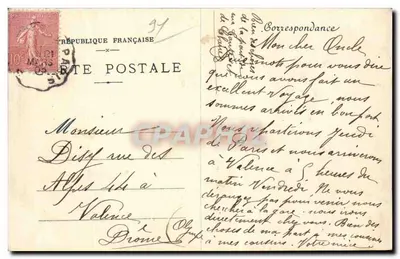 RÉPUBLIQUE FRANÇAISE
TE POSTALE
Correspondance
91
Mon cher Oncle
mots pour vous dire
que nous avons fait un
excellent voyage, nous
sommes arrivés en bon port
Nous partirons Jeudi
de Paris et nous arriverons
à Valence à 5 heures du
matin Vendredi. Ne vous
dérangez pas pour venir nous
chercher à la gare. nous irons
directement chez vous. Bien des
choses de ma part à mes cousines
à mes cousins. Votre nièce
Monsieur
rue des
Alpes à
Valence
Drôme